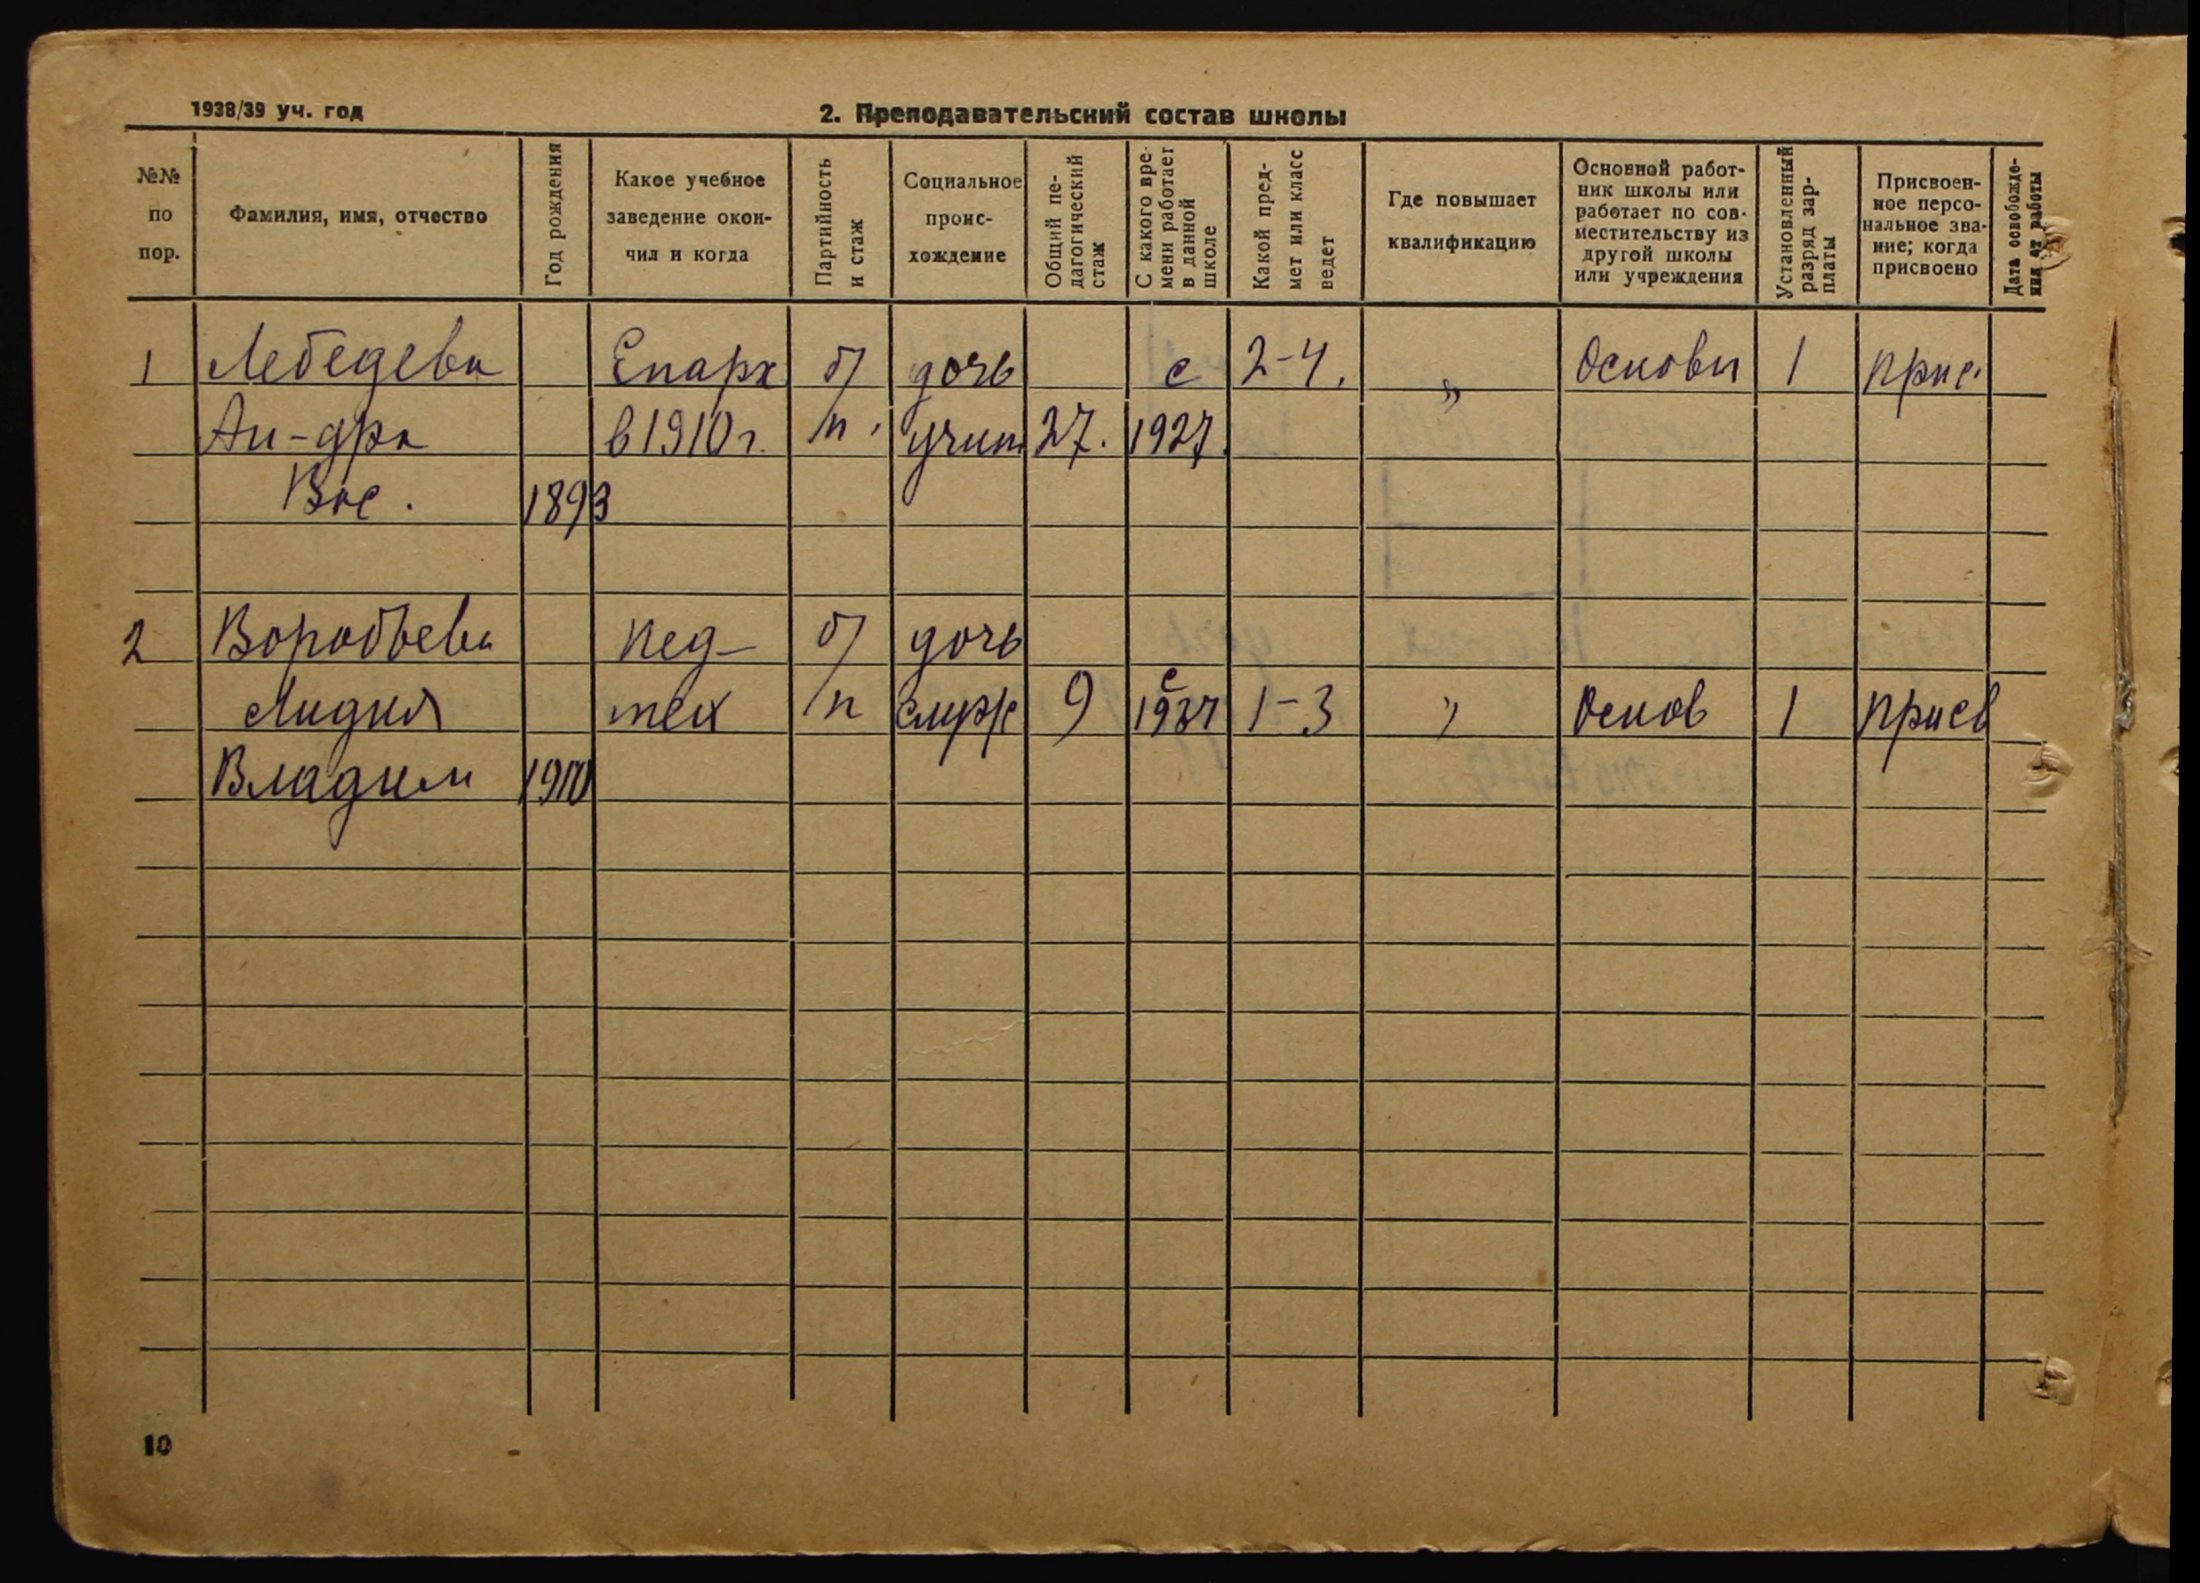 1938/39 уч. год
2. Преподавательский состав школы
№№ по пор.
Фамилия, имя, отчество
Год рождения
Какое учебное заведение окон-
чил и когда
Партийность и стаж
Социальное проис-
хождение
Общий пе-
дагогический стаж
С какого вре-
мени работает в данной школе
Какой пред-
мет или класс ведет
Где повышает квалификацию
Основной работ-
ник школы или работает по сов-
местительству из другой школы или учреждения
Установленный разряд зар-
платы
Присвоен-
ное персо-
нальное зва-
ние; когда присвоено
Дата освобожде-
ния от работы
1 Лебедева Епарх б/ дочь с 2-4. „ Основн 1 прис.
Ан-дра в 1910 г. п. учит 27. 1927.
Вас. 1893
2 Воробьева пед- б/ дочь
Лидия тех /п служ 9 с 1937 1-3 „ Основ 1 присв
Владим 1910
10